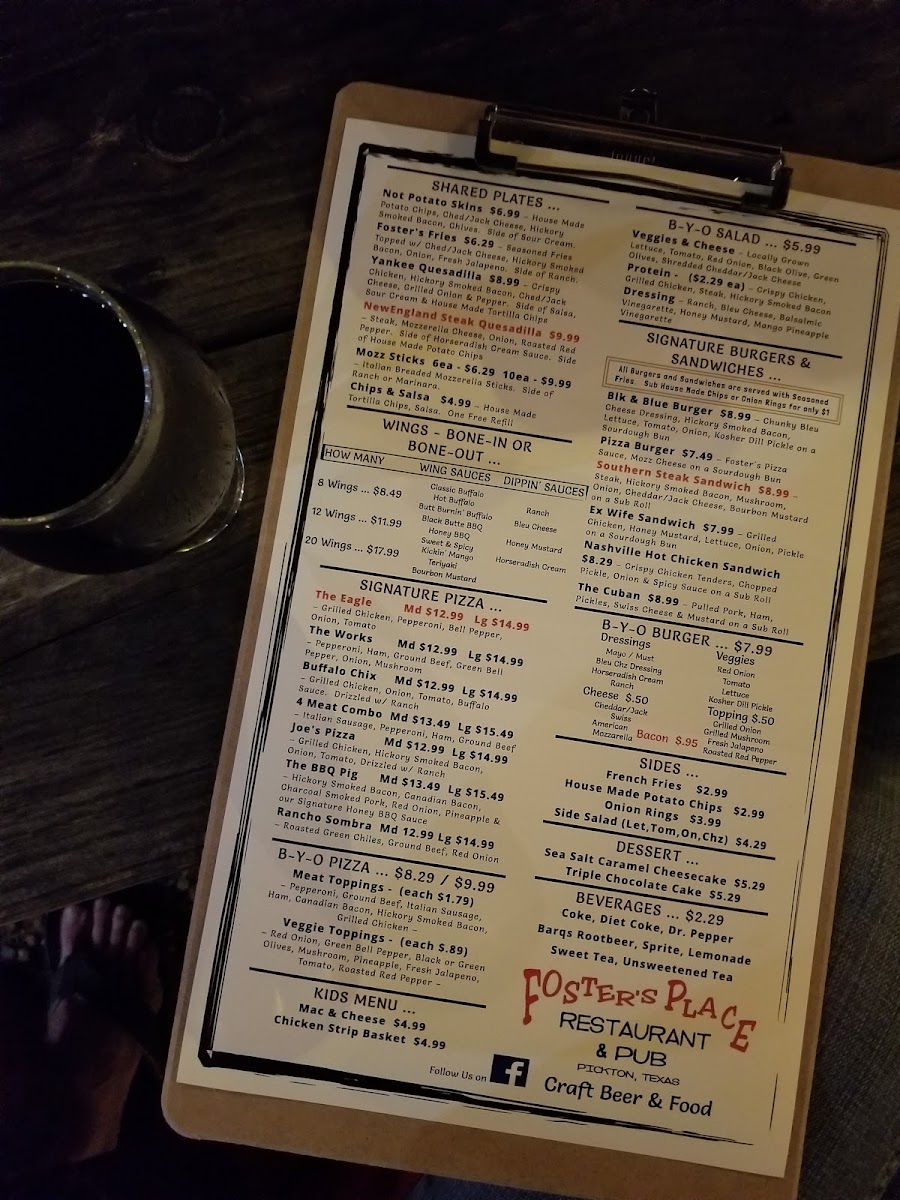 SHARED PLATES ...
Not Potato Skins $6.99 – House Made
Potato Chips, Ched/Jack Cheese, Hickory
Smoked Bacon, Chives. Side of Sour Cream.
Foster's Fries $6.29 – Seasoned Fries
Topped w/ Ched/Jack Cheese, Hickory Smoked
Bacon, Onion, Fresh Jalapeno. Side of Ranch.
Yankee Quesadilla $8.99 – Crispy
Chicken, Hickory Smoked Bacon, Ched/Jack
Cheese, Grilled Onion & Pepper. Side of Salsa,
Sour Cream & House Made Tortilla Chips
NewEngland Steak Quesadilla $9.99
– Steak, Mozzerella Cheese, Onion, Roasted Red
Pepper. Side of Horseradish Cream Sauce. Side
of House Made Potato Chips
Mozz Sticks 6ea - $6.29 10ea - $9.99
– Italian Breaded Mozzerella Sticks. Side of
Ranch or Marinara.
Chips & Salsa $4.99 – House Made
Tortilla Chips, Salsa. One Free Refill
WINGS - BONE-IN OR
BONE-OUT ...
HOW MANY WING SAUCES DIPPIN' SAUCES
8 Wings ... $8.49
12 Wings ... $11.99
20 Wings ... $17.99
Classic Buffalo
Hot Buffalo
Butt Burnin' Buffalo
Black Butte BBQ
Honey BBQ
Sweet & Spicy
Kickin' Mango
Teriyaki
Bourbon Mustard
Ranch
Bleu Cheese
Honey Mustard
Horseradish Cream
SIGNATURE PIZZA ...
The Eagle Md $12.99 Lg $14.99
– Grilled Chicken, Pepperoni, Bell Pepper,
Onion, Tomato
The Works Md $12.99 Lg $14.99
– Pepperoni, Ham, Ground Beef, Green Bell
Pepper, Onion, Mushroom
Buffalo Chix Md $12.99 Lg $14.99
– Grilled Chicken, Onion, Tomato, Buffalo
Sauce. Drizzled w/ Ranch
4 Meat Combo Md $13.49 Lg $15.49
– Italian Sausage, Pepperoni, Ham, Ground Beef
Joe's Pizza Md $12.99 Lg $14.99
– Grilled Chicken, Hickory Smoked Bacon,
Onion, Tomato, Drizzled w/ Ranch
The BBQ Pig Md $13.49 Lg $15.49
– Hickory Smoked Bacon, Canadian Bacon,
Charcoal Smoked Pork, Red Onion, Pineapple &
our Signature Honey BBQ Sauce
Rancho Sombra Md 12.99 Lg $14.99
– Roasted Green Chiles, Ground Beef, Red Onion
B-Y-O PIZZA ... $8.29 / $9.99
Meat Toppings - (each $1.79)
– Pepperoni, Ground Beef, Italian Sausage,
Ham, Canadian Bacon, Hickory Smoked Bacon,
Grilled Chicken –
Veggie Toppings - (each $.89)
– Red Onion, Green Bell Pepper, Black or Green
Olives, Mushroom, Pineapple, Fresh Jalapeno,
Tomato, Roasted Red Pepper –
KIDS MENU ...
Mac & Cheese $4.99
Chicken Strip Basket $4.99
Follow Us on f
B-Y-O SALAD ... $5.99
Veggies & Cheese – Locally Grown
Lettuce, Tomato, Red Onion, Black Olive, Green
Olives, Shredded Cheddar/Jack Cheese
Protein - ($2.29 ea) – Crispy Chicken,
Grilled Chicken, Steak, Hickory Smoked Bacon
Dressing – Ranch, Bleu Cheese, Balsalmic
Vinegarette, Honey Mustard, Mango Pineapple
Vinegarette
SIGNATURE BURGERS &
SANDWICHES ...
All Burgers and Sandwiches are served with Seasoned
Fries. Sub House Made Chips or Onion Rings for only $1
Blk & Blue Burger $8.99 – Chunky Bleu
Cheese Dressing, Hickory Smoked Bacon,
Lettuce, Tomato, Onion, Kosher Dill Pickle on a
Sourdough Bun
Pizza Burger $7.49 – Foster's Pizza
Sauce, Mozz Cheese on a Sourdough Bun
Southern Steak Sandwich $8.99 –
Steak, Hickory Smoked Bacon, Mushroom,
Onion, Cheddar/Jack Cheese, Bourbon Mustard
on a Sub Roll
Ex Wife Sandwich $7.99 – Grilled
Chicken, Honey Mustard, Lettuce, Onion, Pickle
on a Sourdough Bun
Nashville Hot Chicken Sandwich
$8.29 – Crispy Chicken Tenders, Chopped
Pickle, Onion & Spicy Sauce on a Sub Roll
The Cuban $8.99 – Pulled Pork, Ham,
Pickles, Swiss Cheese & Mustard on a Sub Roll
B-Y-O BURGER ... $7.99
Dressings
Mayo / Must
Bleu Chz Dressing
Horseradish Cream
Ranch
Cheese $.50
Cheddar/Jack
Swiss
American
Mozzarella
Bacon $.95
Veggies
Red Onion
Tomato
Lettuce
Kosher Dill Pickle
Topping $.50
Grilled Onion
Grilled Mushroom
Fresh Jalapeno
Roasted Red Pepper
SIDES ...
French Fries $2.99
House Made Potato Chips $2.99
Onion Rings $3.99
Side Salad (Let,Tom,On,Chz) $4.29
DESSERT ...
Sea Salt Caramel Cheesecake $5.29
Triple Chocolate Cake $5.29
BEVERAGES ... $2.29
Coke, Diet Coke, Dr. Pepper
Barqs Rootbeer, Sprite, Lemonade
Sweet Tea, Unsweetened Tea
FOSTER'S PLACE
RESTAURANT
& PUB
PICKTON, TEXAS
Craft Beer & Food